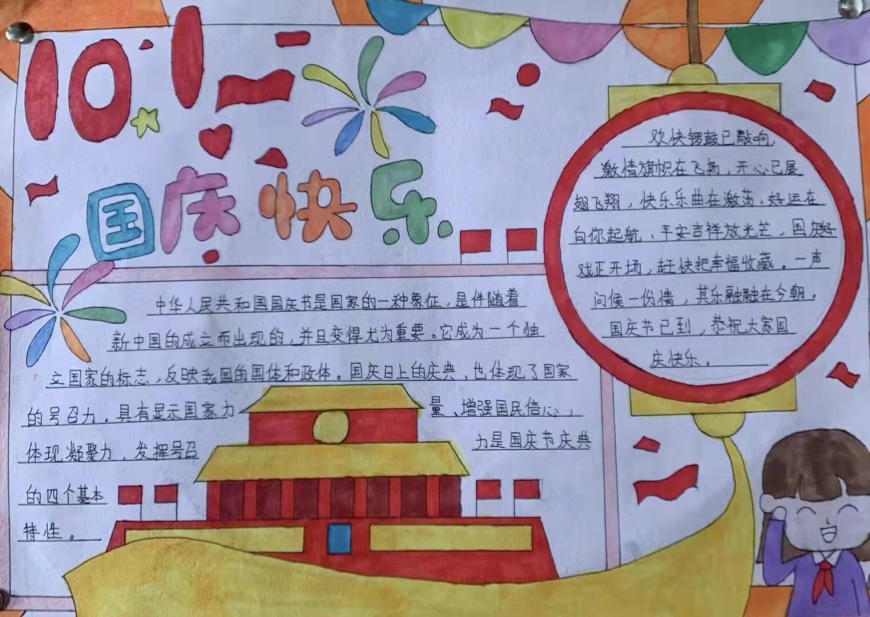 10.1
国庆快乐
中华人民共和国国庆节是国家的一种象征，是伴随着
新中国的成立而出现的，并且变得尤为重要。它成为一个独
立国家的标志，反映我国的国体和政体。国庆日上的庆典，也体现了国家
的号召力。具有显示国家力量、增强国民信心，
体现凝聚力，发挥号召力是国庆节庆典
的四个基本
特性。
欢快锣鼓已敲响，
激情旗帜在飞扬，开心已展
翅飞翔，快乐乐曲在激荡，好运在
向你起航，平安吉祥放光芒，国庆好
戏正开场，赶快把幸福收藏。一声
问候一份情，其乐融融在今朝。
国庆节已到，恭祝大家国
庆快乐。